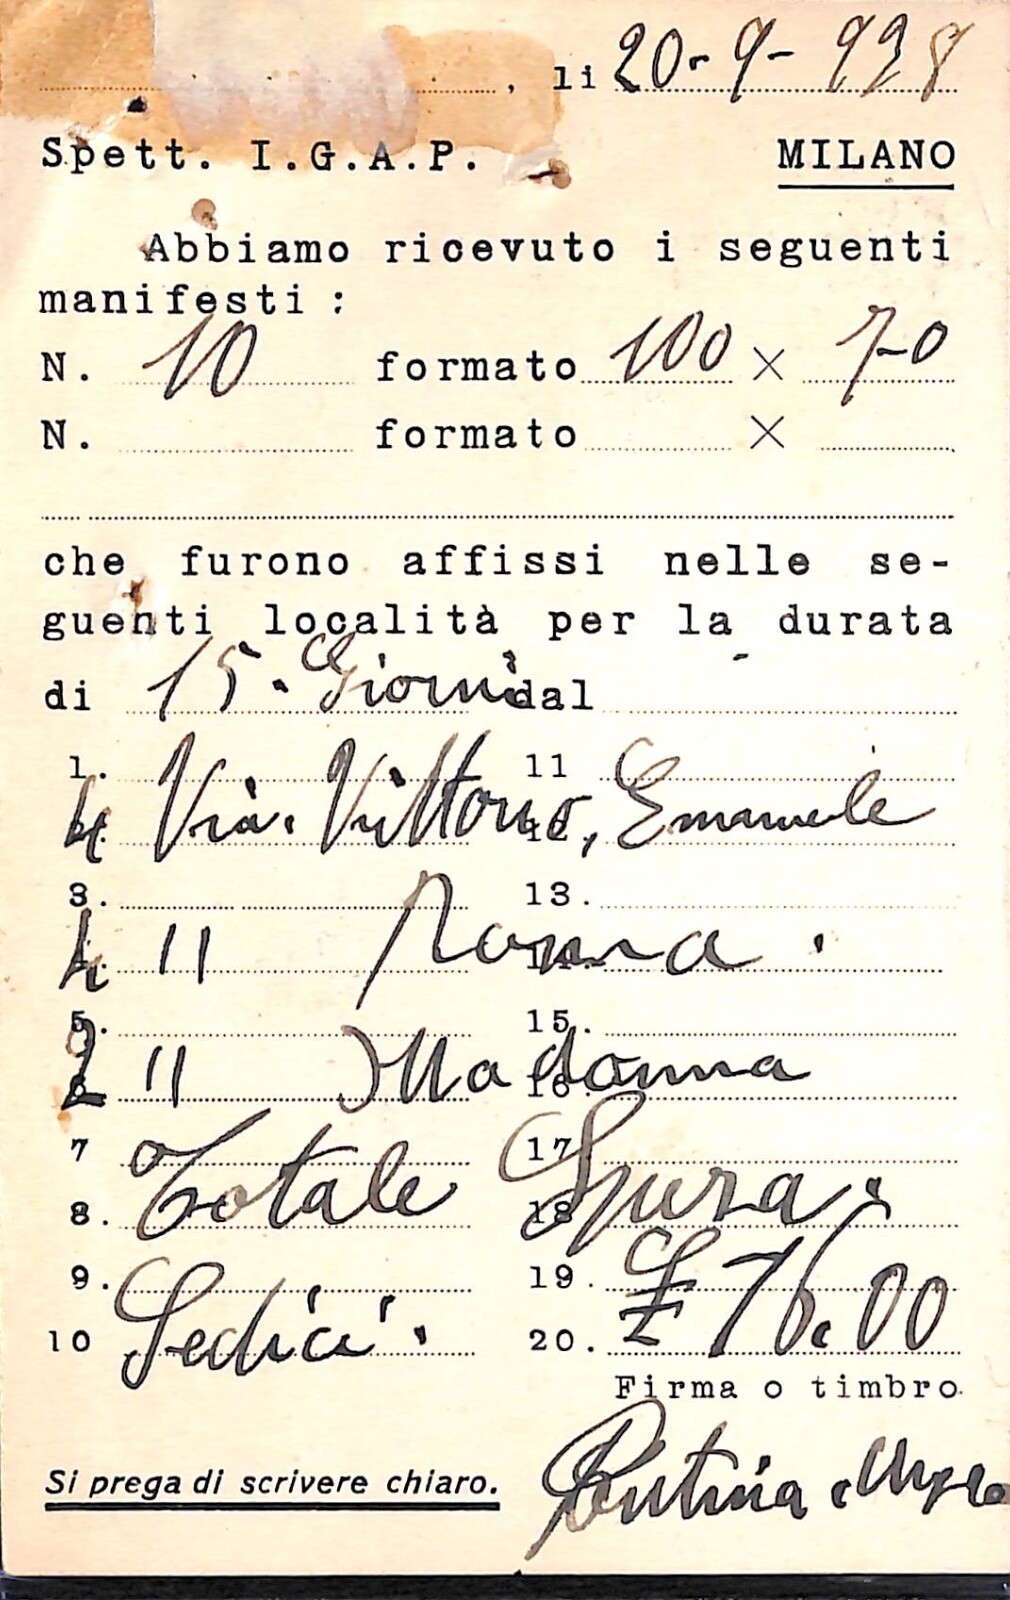 , li 20-9-938
Spett. I.G.A.P. MILANO
Abbiamo ricevuto i seguenti
manifesti :
N. 10 formato 100 × 70
N. formato ×
che furono affissi nelle se-
guenti località per la durata
di 15. Giorni dal
1. 11
4 Via. Vittorio, Emanuele
3. 13.
4 11 Roma.
5. 15.
2 11 Madonna
7 17
8. Totale Spesa.
9. 19. £ 76.00
10 Sedici. 20.
Firma o timbro
Si prega di scrivere chiaro.